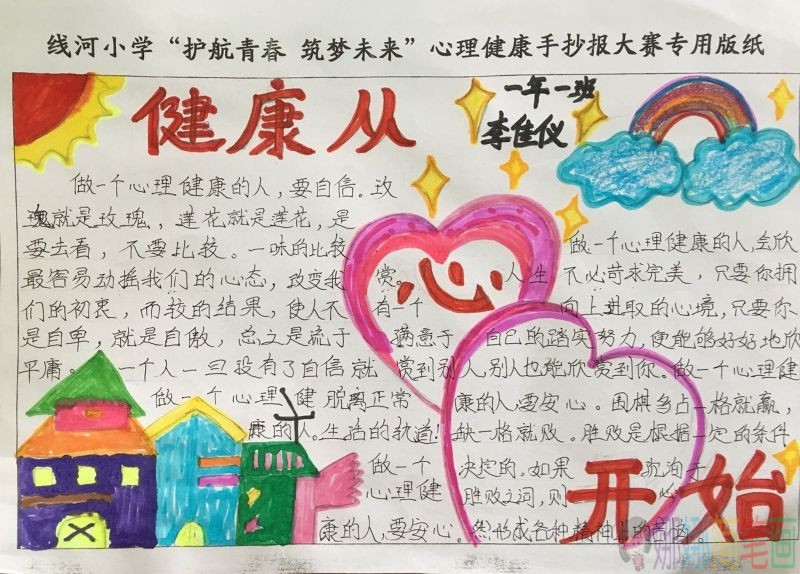 线河小学“护航青春 筑梦未来”心理健康手抄报大赛专用版纸
健康从心开始
一年一班
李佳仪
做一个心理健康的人,要自信。玫
瑰就是玫瑰,莲花就是莲花,是
要去看,不要比较。一味的比较
最容易动摇我们的心态,改变我
们的初衷,而较的结果,使人不
是自卑,就是自傲,总之是流于
平庸。一个人一旦没有了自信就
脱离正常
生活的轨道!
做一个心理健
康的人,
做一个心理健康的人,会欣
赏。人生不必苛求完美,只要你拥
有一个向上进取的心境,只要你
满意于自己的踏实努力,使能够好好地欣
赏到别人,别人也能欣赏到你。做一个心理健
康的人,要安心。围棋多占一格就赢,
缺一格就败。胜败是根据一定的条件
决定的。如果沉沟于
胜败之词,则心
然形成各种精神上的
做一个
心理健
康的人,要安心。